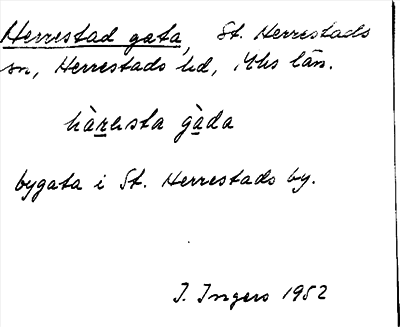 Herrestad gata, St. Herrestads
sn, Herrestads hd, Mhs län.
hàresta gàda
bygata i St. Herrestads by.
J. Ingers 1952